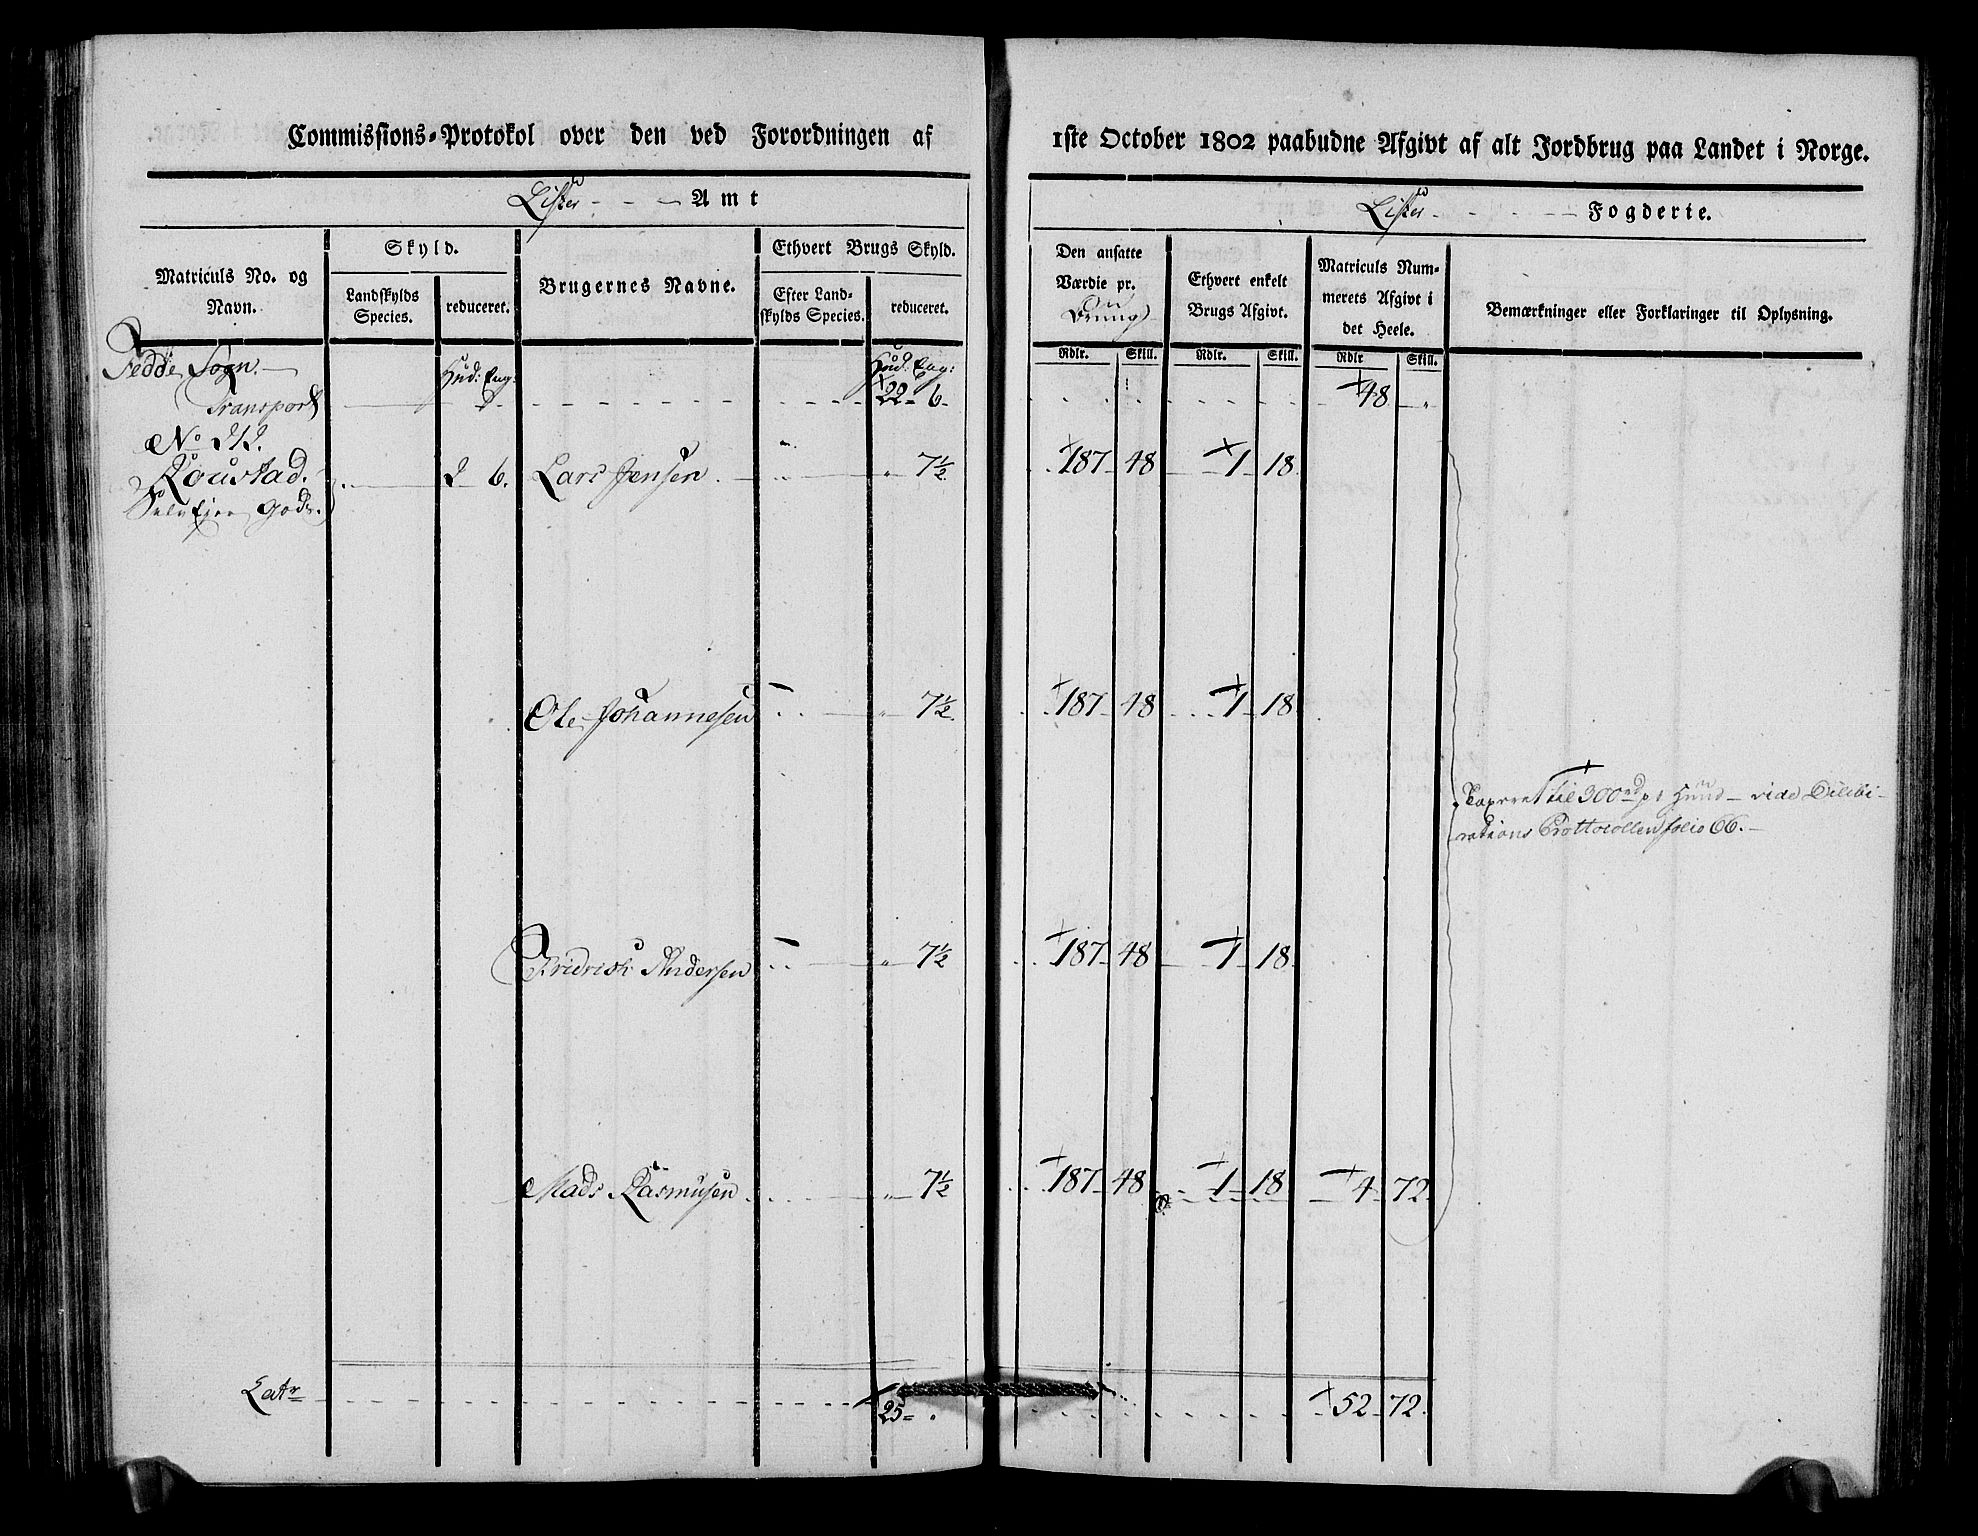 Commissions-Protokol over den ved Forordningen af 1ste October 1802 paabudne Afgivt af alt Jordbrug paa Landet i Norge.
Lister - - - Amt
Lister - - - Fogderie.
Matriculs No. og Navn.
Skyld.
Landskylds Species.
reduceret.
Brugernes Navne.
Ethvert Brugs Skyld.
Efter Landskylds Species.
reduceret.
Den ansatte Værdie pr.
Rdlr. Skill.
Ethvert enkelt Brugs Afgivt.
Rdlr. Skill.
Matriculs Nummerets Afgivt i det Heele.
Rdlr Skill.
Bemærkninger eller Forklaringer til Oplysning.
Fedde Sogn. Hud: Eng: Hud: Eng:
Transport 22 6 48 "
No
Roustad. 2 6. Lars Jensen " 7½ 187 48 1 18
Ole Johannesen " 7½ 187 48 1 18
Taxeret til 300 rd pr Huud - vide Delibe-
rations Prottocollen folio 66.
Fridrich Andersen " 7½ 187 48 1 18
Mads Rasmusen " 7½ 187 48 1 18 4 72
Latr 25 " 52 72